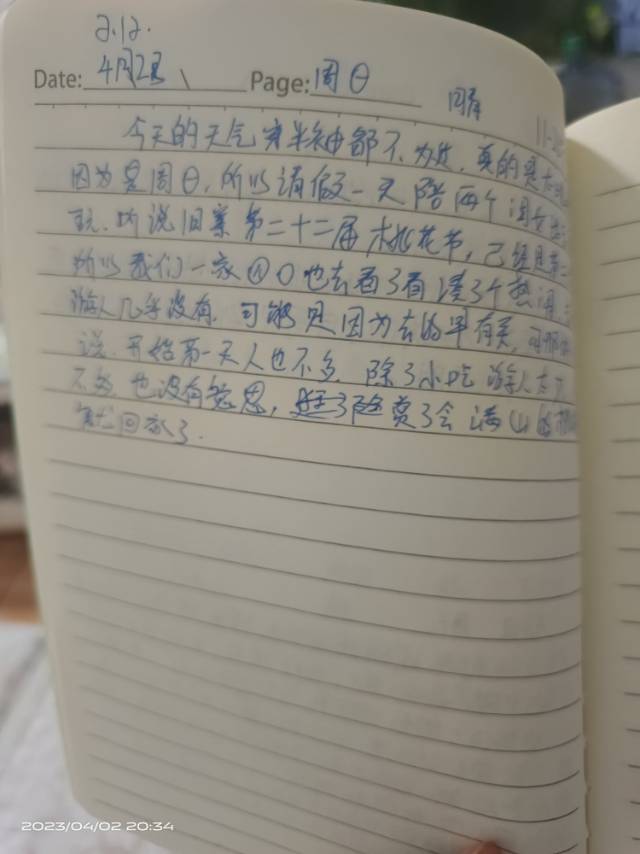 2.12.
Date: 4月2日 Page: 周日
今天的天气 都不 真的
因为是周日,所以请假一天陪两个闺女
玩,听说旧寨第二十二届 桃花节,已经是第二
所以我们一家④口也去看了看凑了个热闹,
游人几乎没有,可能是因为去的早有关,可
说,开始第一天人也不多,除了小吃游人太
不然也没有意思, 赏了会满山的桃
就回家了.
2023/04/02 20:34